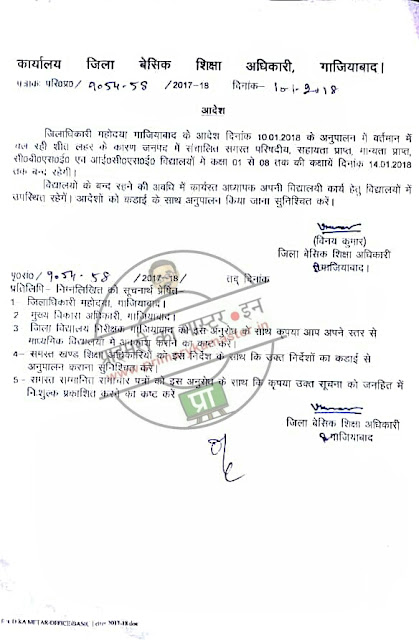 कार्यालय जिला बेसिक शिक्षा अधिकारी, गाजियाबाद।
पत्रांक परि०प्रा०/ 9054-58 /2017-18 दिनांक- 10-1-2018
आदेश
जिलाधिकारी महोदया गाजियाबाद के आदेश दिनांक 10.01.2018 के अनुपालन में वर्तमान में
चल रही शीत लहर के कारण जनपद में संचालित समस्त परिषदीय, सहायता प्राप्त, मान्यता प्राप्त,
सी०बी०एस०ई० एवं आई०सी०एस०ई० विद्यालयों में कक्षा 01 से 08 तक की कक्षायें दिनांक 14.01.2018
तक बन्द रहेगी।
विद्यालयों के बन्द रहने की अवधि में कार्यरत अध्यापक अपनी विद्यालयी कार्य हेतु विद्यालयों में
उपस्थित रहेगें। आदेशों को कडाई के साथ अनुपालन किया जाना सुनिश्चित करें।
(विनय कुमार)
जिला बेसिक शिक्षा अधिकारी
गाजियाबाद।
पृ०सं०/ 9054-58 /2017-18/ तद् दिनांक
प्रतिलिपि- निम्नलिखित को सूचनार्थ प्रेषित-
1- जिलाधिकारी महोदया, गाजियाबाद।
2 मुख्य विकास अधिकारी, गाजियाबाद।
3 जिला विद्यालय निरीक्षक गाजियाबाद को इस अनुरोध के साथ कृपया आप अपने स्तर से
माध्यमिक विद्यालयों में अवकाश कराने का कष्ट करें।
4- समस्त खण्ड शिक्षा अधिकारियों को इस निर्देश के साथ कि उक्त निर्देशों का कडाई से
अनुपालन कराना सुनिश्चित करें।
5- समस्त सम्मानित समाचार पत्रों को इस अनुरोध के साथ कि कृपया उक्त सूचना को जनहित में
नि:शुल्क प्रकाशित करने का कष्ट करें
जिला बेसिक शिक्षा अधिकारी
गाजियाबाद
प्राइमरी का मास्टर●इन
प्रा